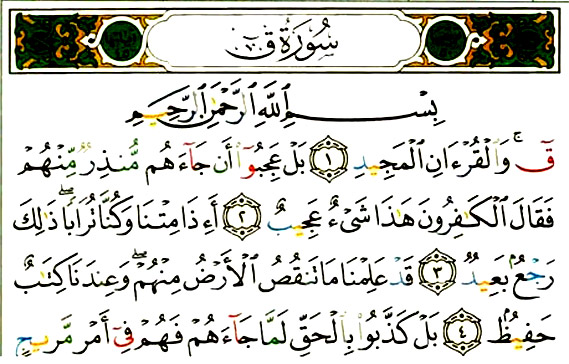 سُورَةُ ق
بِسْمِ ٱللَّهِ ٱلرَّحْمَٰنِ ٱلرَّحِيمِ
قٓ ۚ وَٱلْقُرْءَانِ ٱلْمَجِيدِ ١ بَلْ عَجِبُوٓا۟ أَن جَآءَهُم مُّنذِرٌ مِّنْهُمْ
فَقَالَ ٱلْكَٰفِرُونَ هَٰذَا شَىْءٌ عَجِيبٌ ٢ أَءِذَا مِتْنَا وَكُنَّا تُرَابًا ۖ ذَٰلِكَ
رَجْعٌۢ بَعِيدٌ ٣ قَدْ عَلِمْنَا مَا تَنقُصُ ٱلْأَرْضُ مِنْهُمْ ۖ وَعِندَنَا كِتَٰبٌ
حَفِيظٌۢ ٤ بَلْ كَذَّبُوا۟ بِٱلْحَقِّ لَمَّا جَآءَهُمْ فَهُمْ فِىٓ أَمْرٍ مَّرِيجٍ